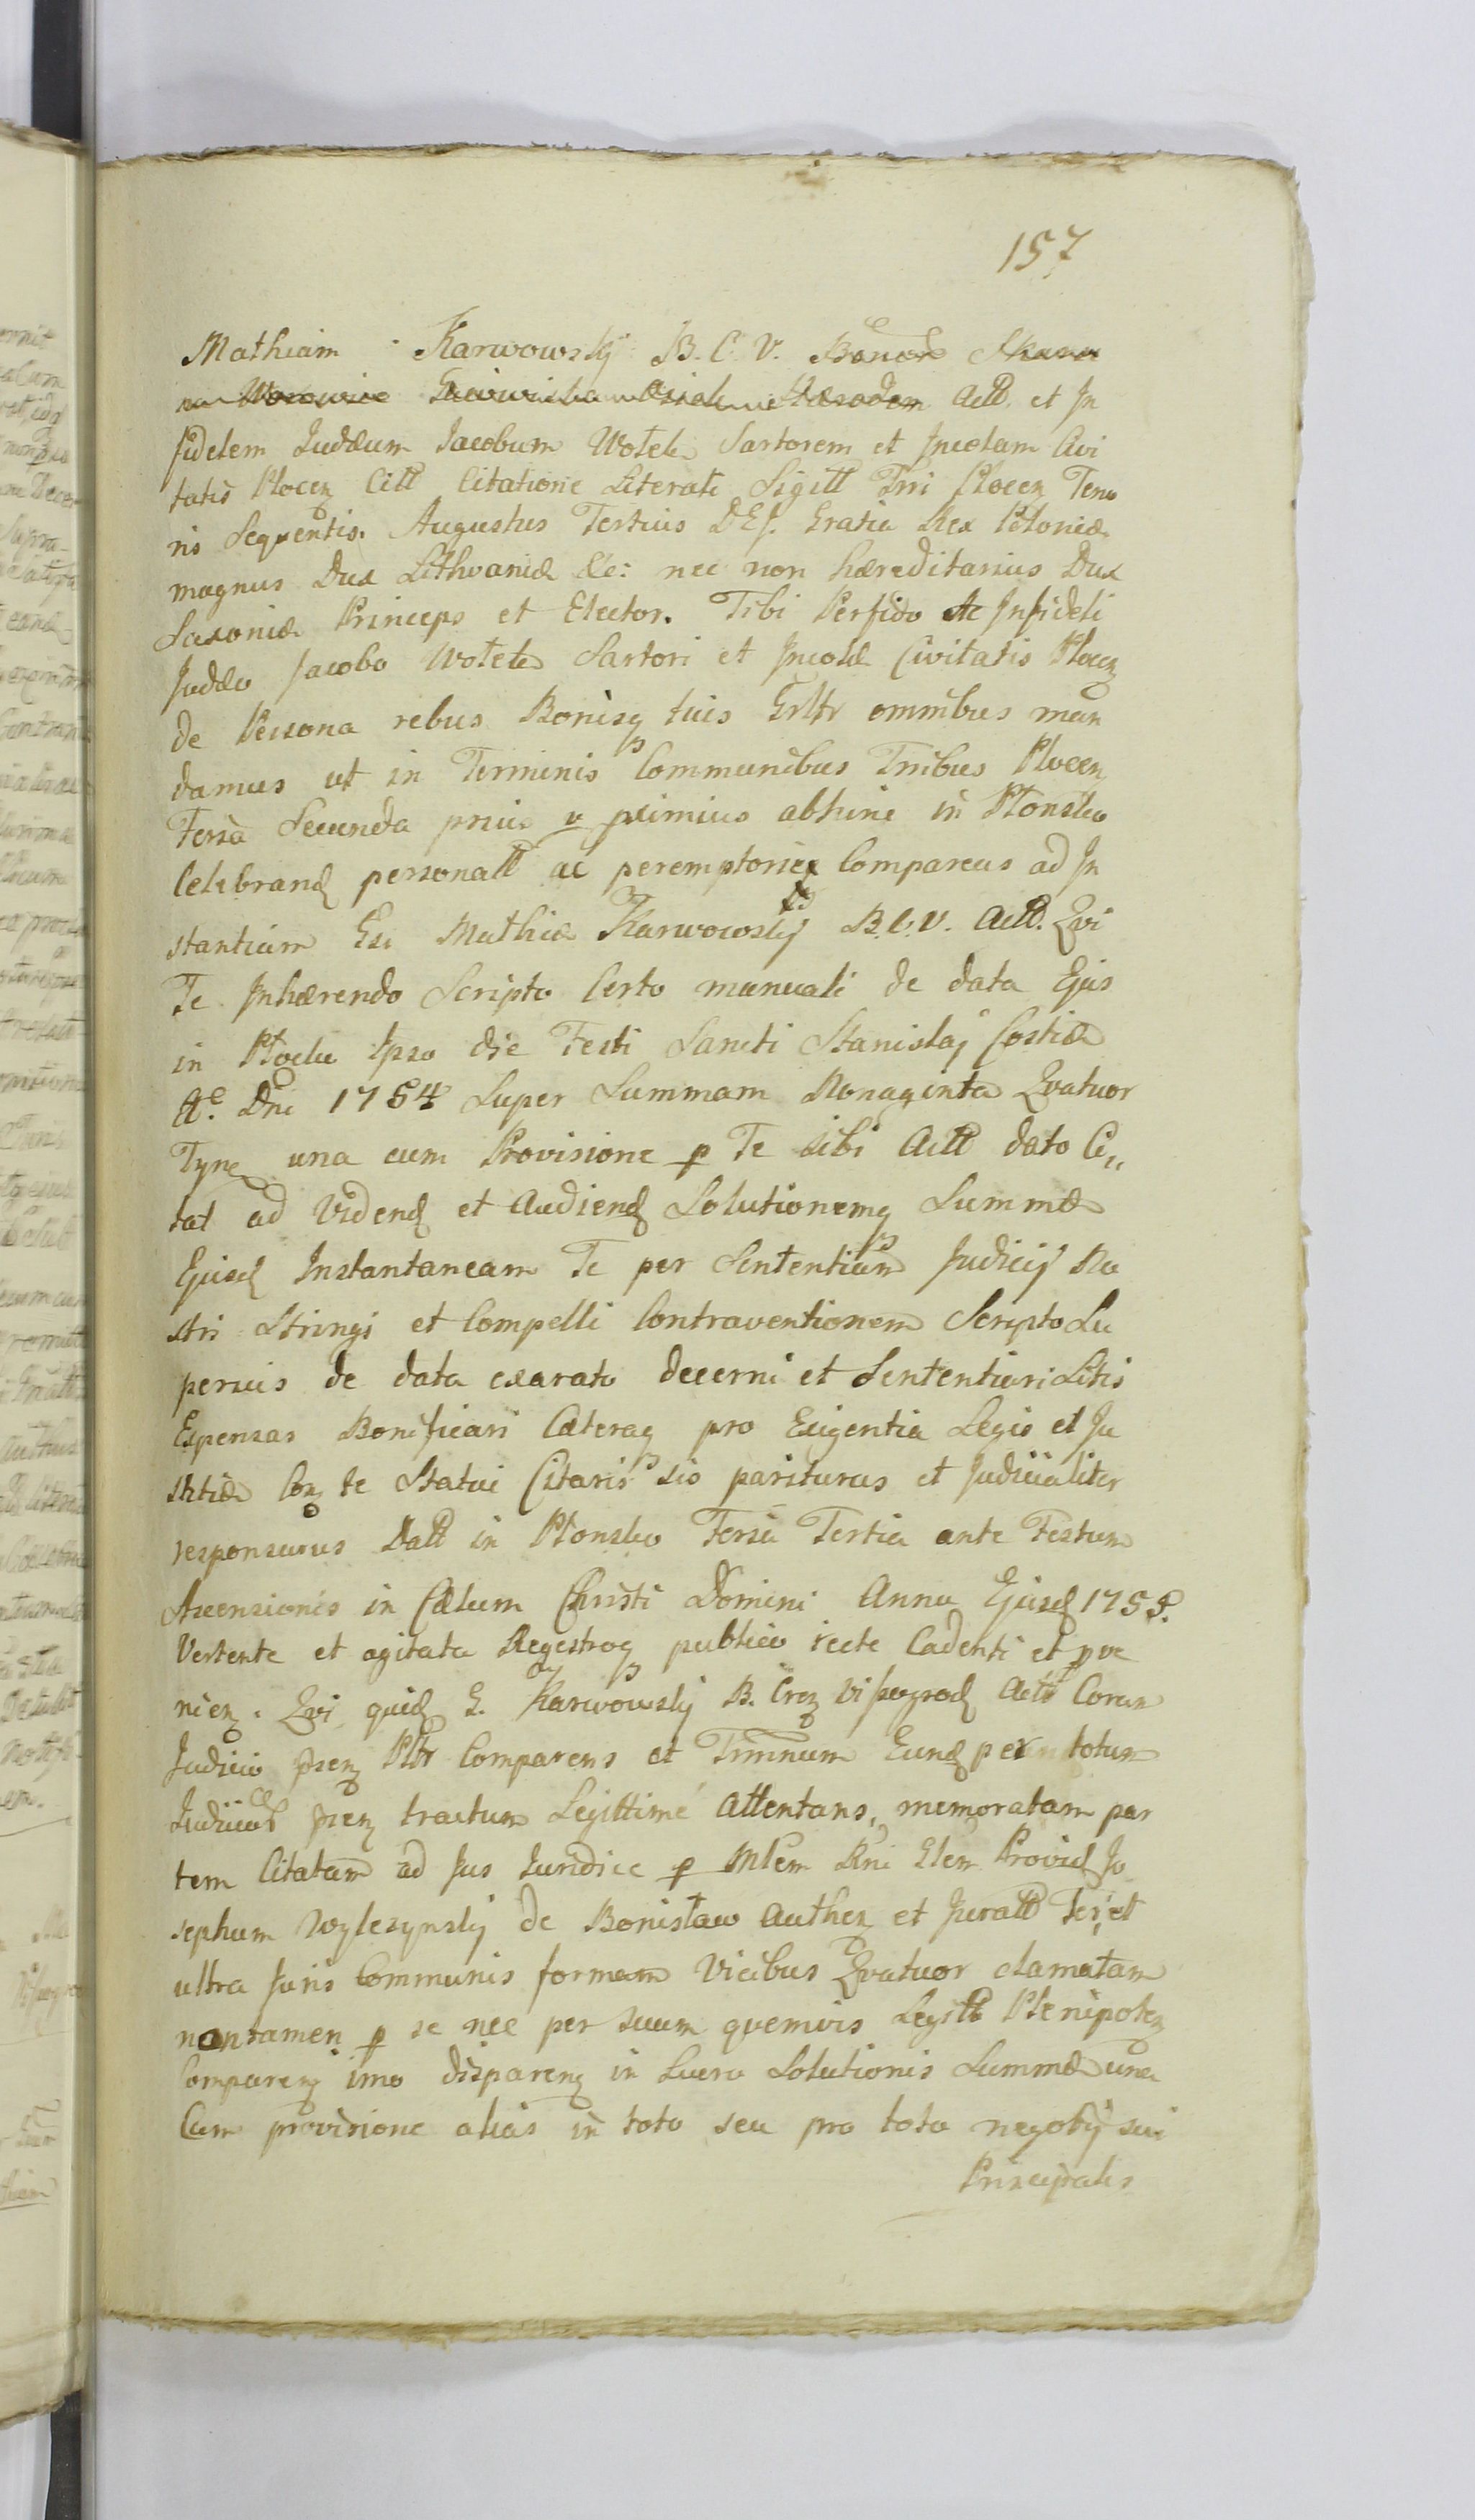 157
Mathiam Karwowskÿ B. C. V. Act͠t et In
fidelem Judæum Jacobum Wotek Sartorem et Incolam Civi
tatis Plocen Citt Citatione Literali Sigill Trri Plocen Teno
ris Sequentis. Augustus Tertius DEI. Gratia Rex Poloniæ
magnus Dux Lithvaniæ &c: nec non hæreditarius Dux
Saxoniæ Princeps et Elector. Tibi Perfido Ac Infideli
Judæo Jacobo Wotek Sartori et Incolæ Civitatis Plocen
de Persona rebus Bonisq tuis Grltr omnibus man
damus ut in Terminis Communibus Trribus Plocen
Feria Secunda prius v primius abhinc in Płonsko
Celebrand personalt ac peremptorie Compareas ad In
stantiam Gsi Mathiæ Karwowskÿ B. C. V. Actt. Qvi
Te Inhærendo Scripto Certo manuali de data Ejus
in Płocku Ipso die Festi Sancti Stanislaj Costiæ
Aº. Dni 1754 Super Summam Nonaginta Qvatuor
Tynf una cum Provisione p Te sibi Actt dato Ci„
tat ad Vidend et Audiend Solutionemq Summæ
Ejusd Instantaneam Te per Sententiam Judicij No
stri Stringi et Compelli Contraventionem Scripto Su
perius de data exarato decerni et Sententiari Litis
Expensas Bonificari Cæteraq pro Exigentia Legis et Ju
stitiæ Con te Statui Citaris sis pariturus et Judicialiter
responsurus Datt in Płonsko Feria Tertia ante Festum
Ascensionis in Cælum Christi Domini Anno Ejusd 1755.
Vertente et agitata Regestroq publico recte Cadenti et pve
nien. Qvi quid G. Karwowskÿ B. Cren Vissegrod Act Coram
Judicio psen Pltr Comparens et Trminum Eund per totum
Judicial psen tractum Legittimé Attentans, memoratam par
tem Citatam ad Jus Juridice p Mlem Rni Glem Provid Jo
sephum Wylezynskÿ de Bonisław Authen et Juratt Ter, et
ultra Juris Communis formam Vicibus Qvatuor clamatam
nontamen p se nec per suum quemvis Legitt Plenipoten
Comparen imo disparen in Lucro Solutionis Summæ una
Cum provisione alias in toto seu pro toto negotij sui
Principalis